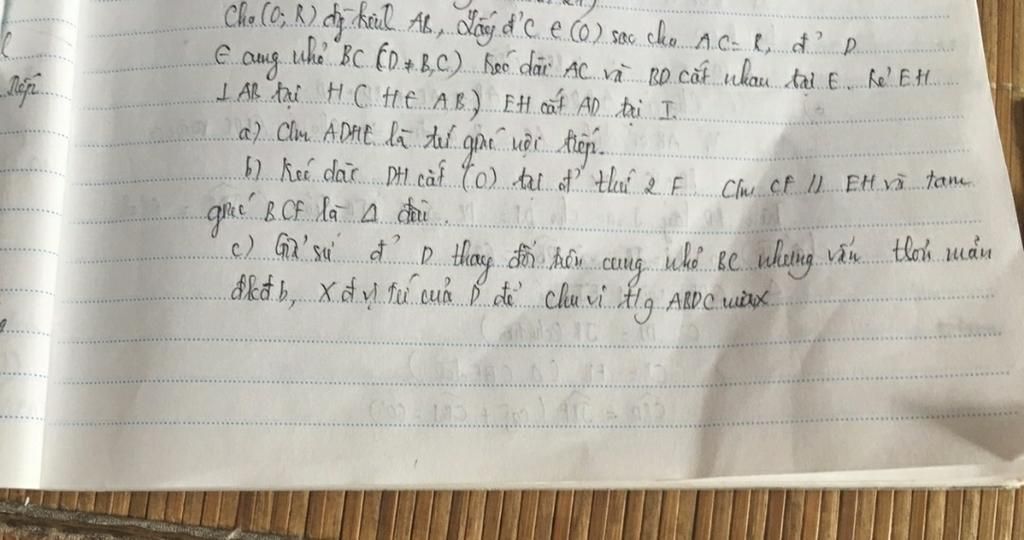 Cho (O; R) đg kính AB, Lấy đ' C ∈ (O) sao cho AC = R, đ' D
∈ cung nhỏ BC (D ≠ B, C) Kéo dài AC và BD cắt nhau tại E. Kẻ EH
Tiếp
⊥ AB tại H (H ∈ AB) EH cắt AD tại I.
a) Cm ADHE là tứ giác nội tiếp.
b) Kéo dài DH cắt (O) tại đ' thứ 2 F Cm CF // EH và tam
giác BCF là Δ đều
c) Giả sử đ' D thay đổi trên cung nhỏ BC nhưng vẫn thoả mãn
đkđb, Xđ vị trí của D để chu vi t/g ABDC max